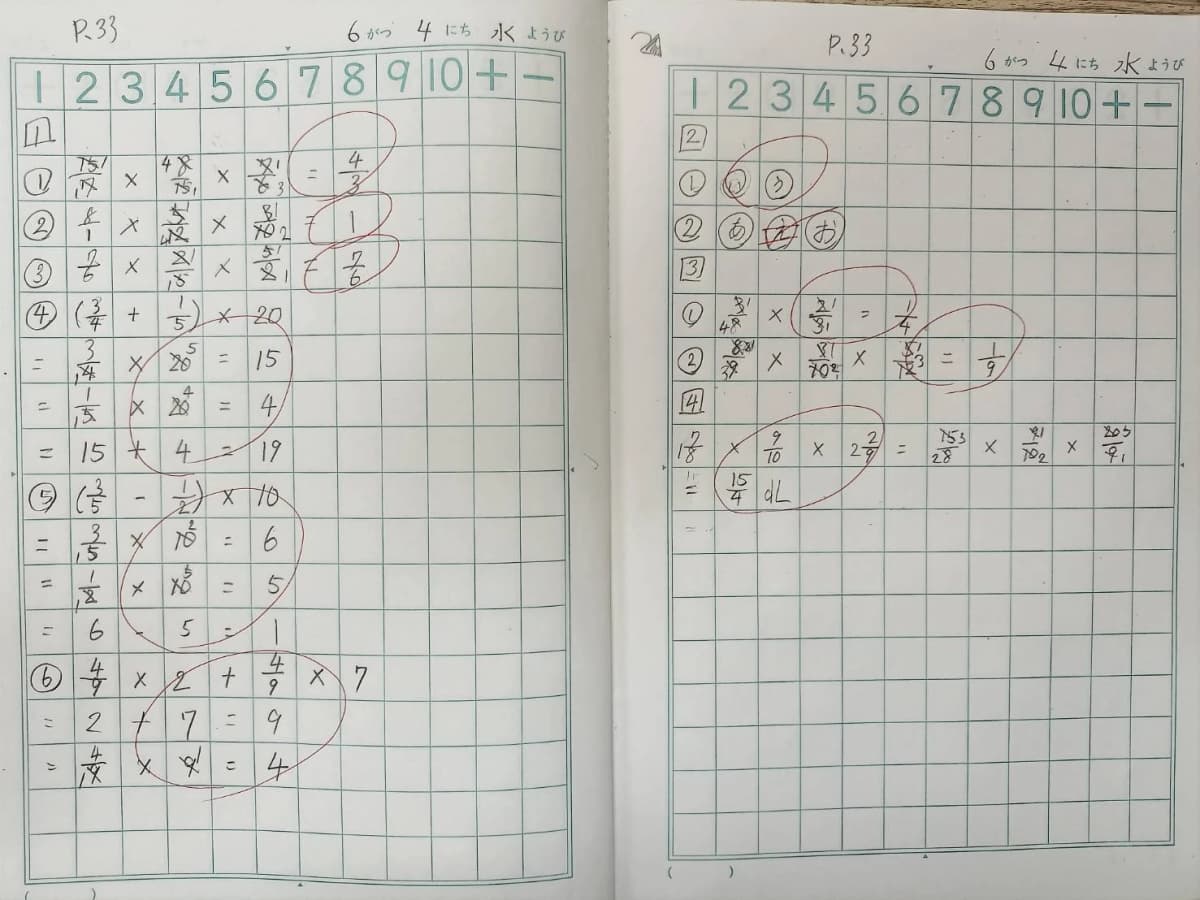 P.33 6がつ 4にち 水ようび
1 2 3 4 5 6 7 8 9 10 + −
1
① 15/17 × 48/15 × = 4/3
② 8/1 × 5/12 × 3/10 = 1
③ 7/6 × 8/15 × 5/8 = 7/6
④ (3/4 + 1/5) × 20
= 3/4 × 20 = 15
= 1/5 × 20 = 4
= 15 + 4 = 19
⑤ (3/5 − 1/2) × 10
= 3/5 × 10 = 6
= 1/2 × 10 = 5
= 6 − 5 = 1
⑥ 4/9 × 2 + 4/9 × 7
= 2 + 7 = 9
= 4/9 × 9 = 4
P.33 6がつ 4にち 水ようび
1 2 3 4 5 6 7 8 9 10 + −
2
① い う
② あ え お
3
① 3/8 × 2/3 = 1/4
② × × = 1/9
4
1 7/8 × 9/10 × 2 2/9 = 15/8 × 9/10 × 20/9
= 15/4 dL
=
( )
( )